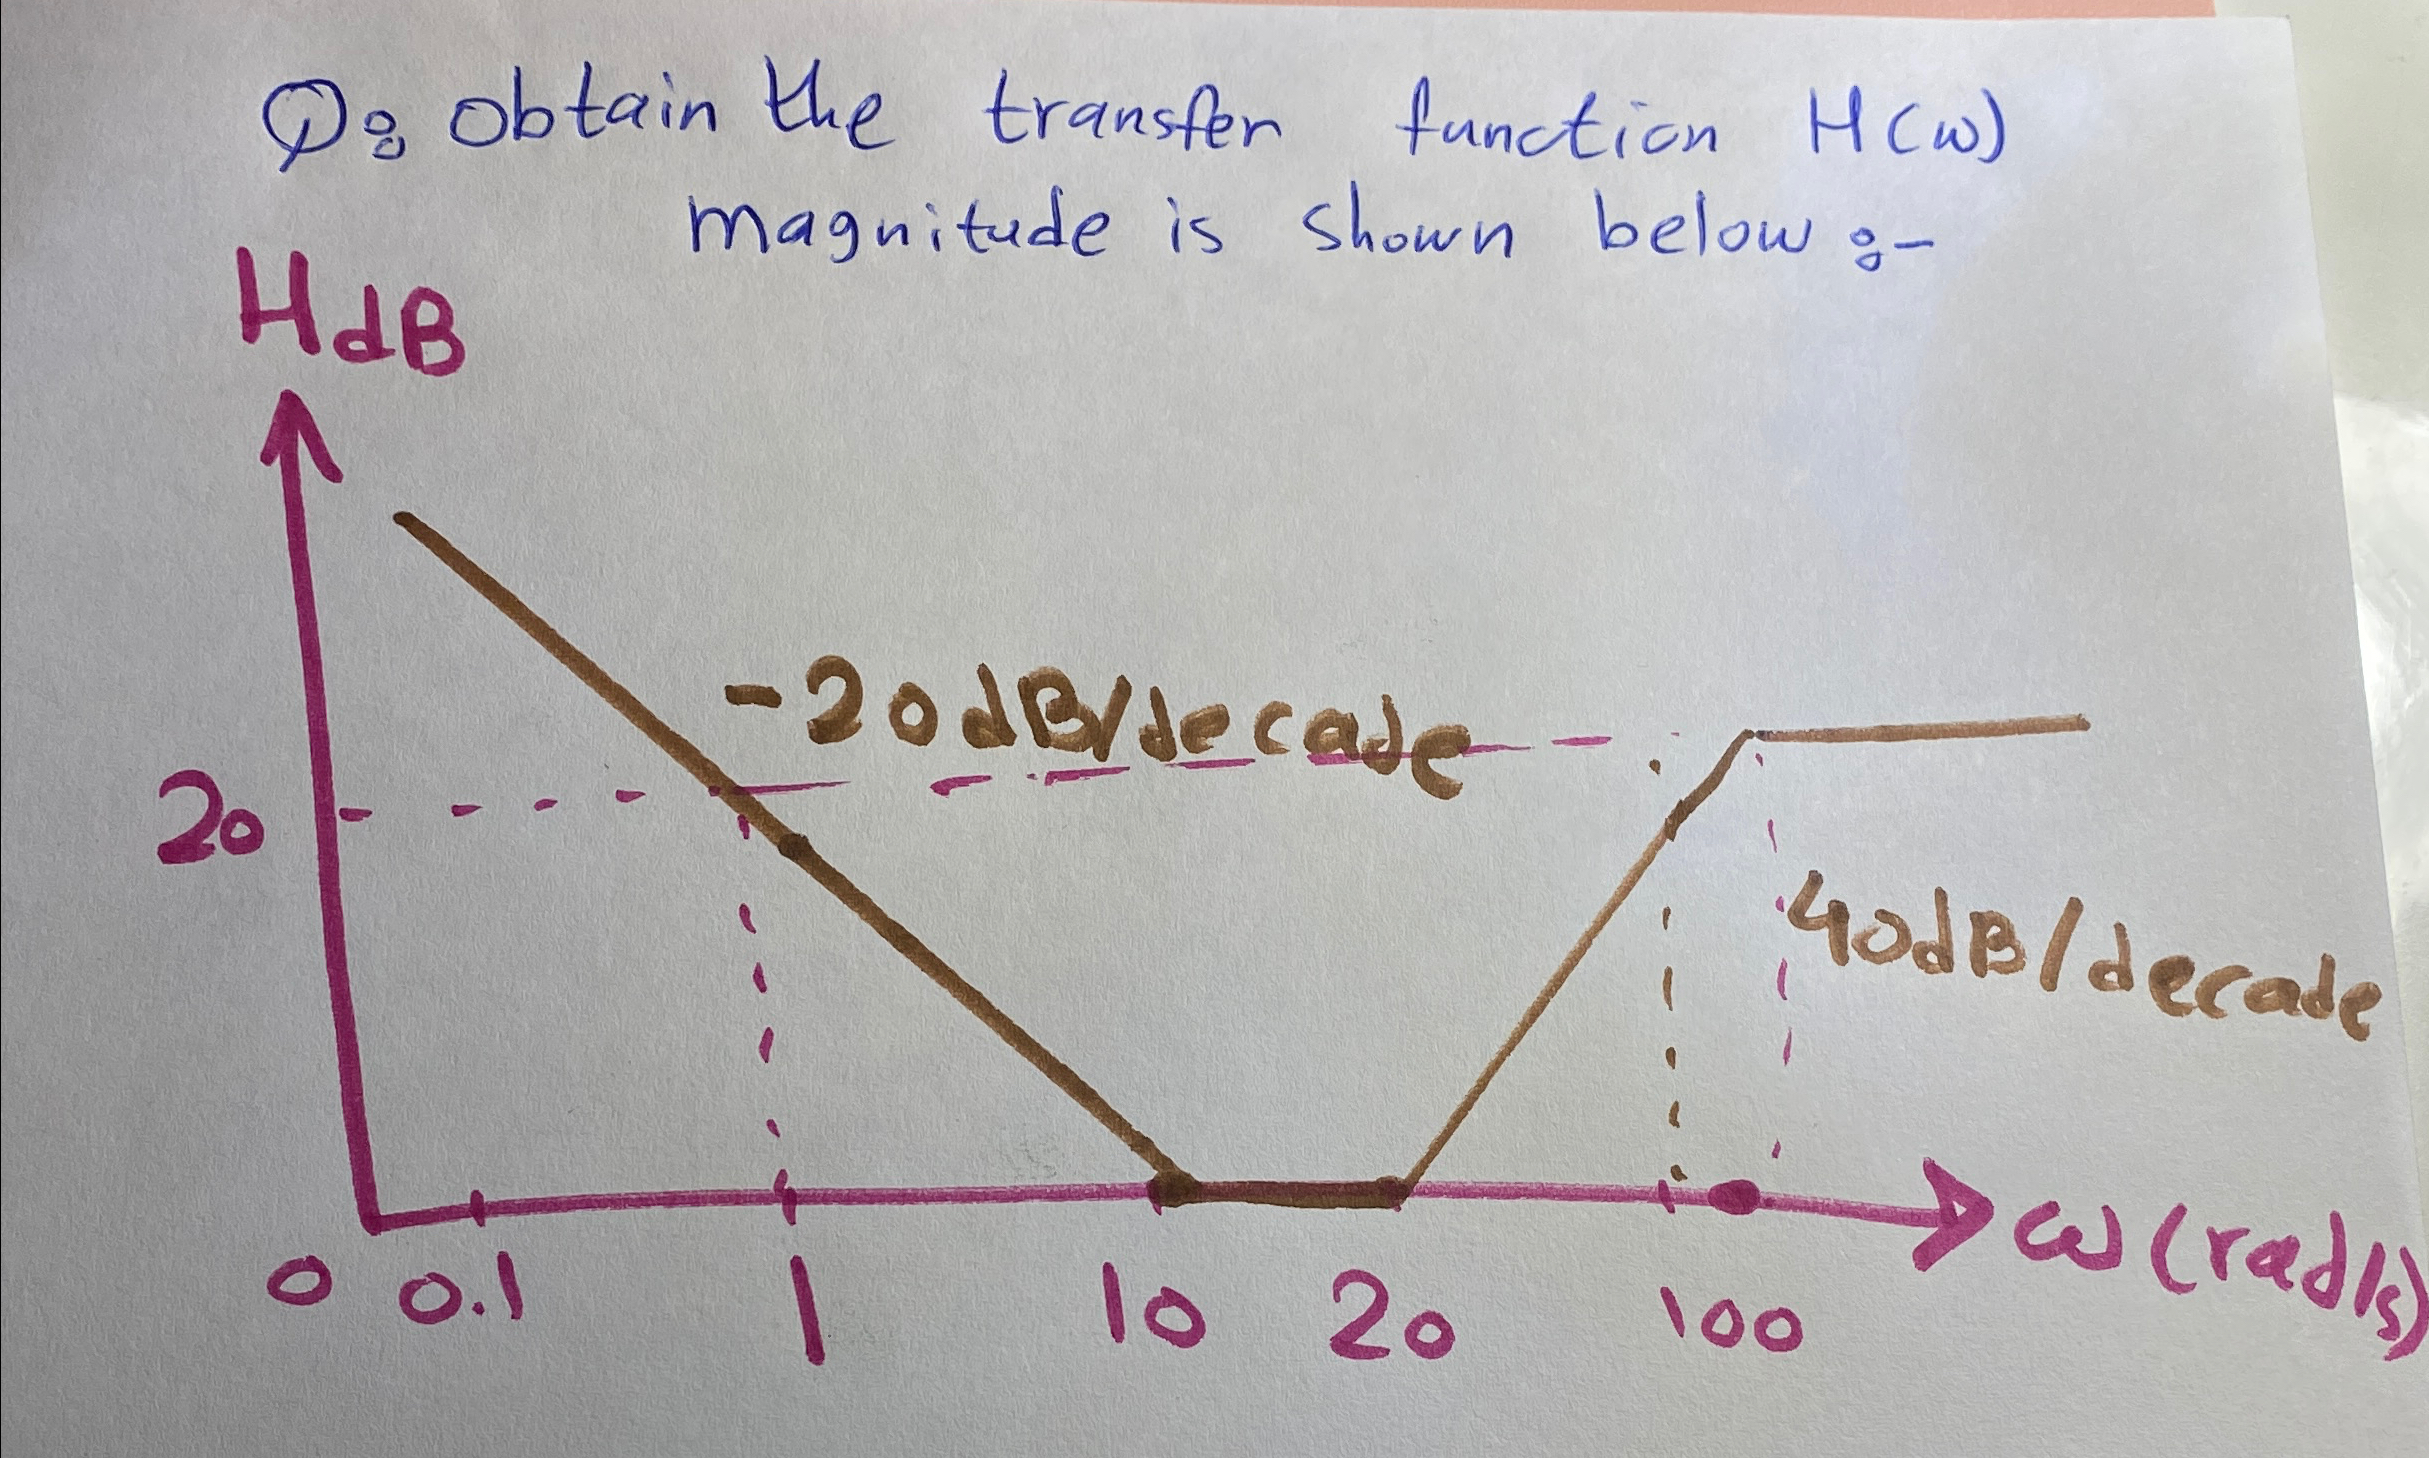 Q: obtain the transfer function H(ω)
magnitude is shown below :-
HdB
-20dB/decade
20
40dB/decade
0 0.1 1 10 20 100 ω(rad/s)